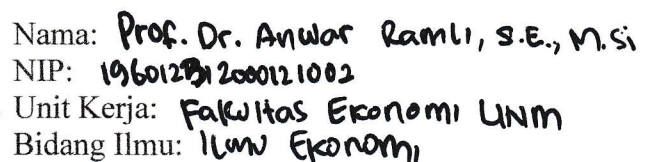 Nama: Prof. Dr. Anwar Ramli, S.E., M.Si
NIP:
Unit Kerja: Fakultas Ekonomi UNM
Bidang Ilmu: Ilmu Ekonomi